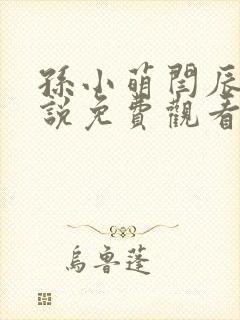 孫小萌閆辰
說免費觀看
烏魯蓬